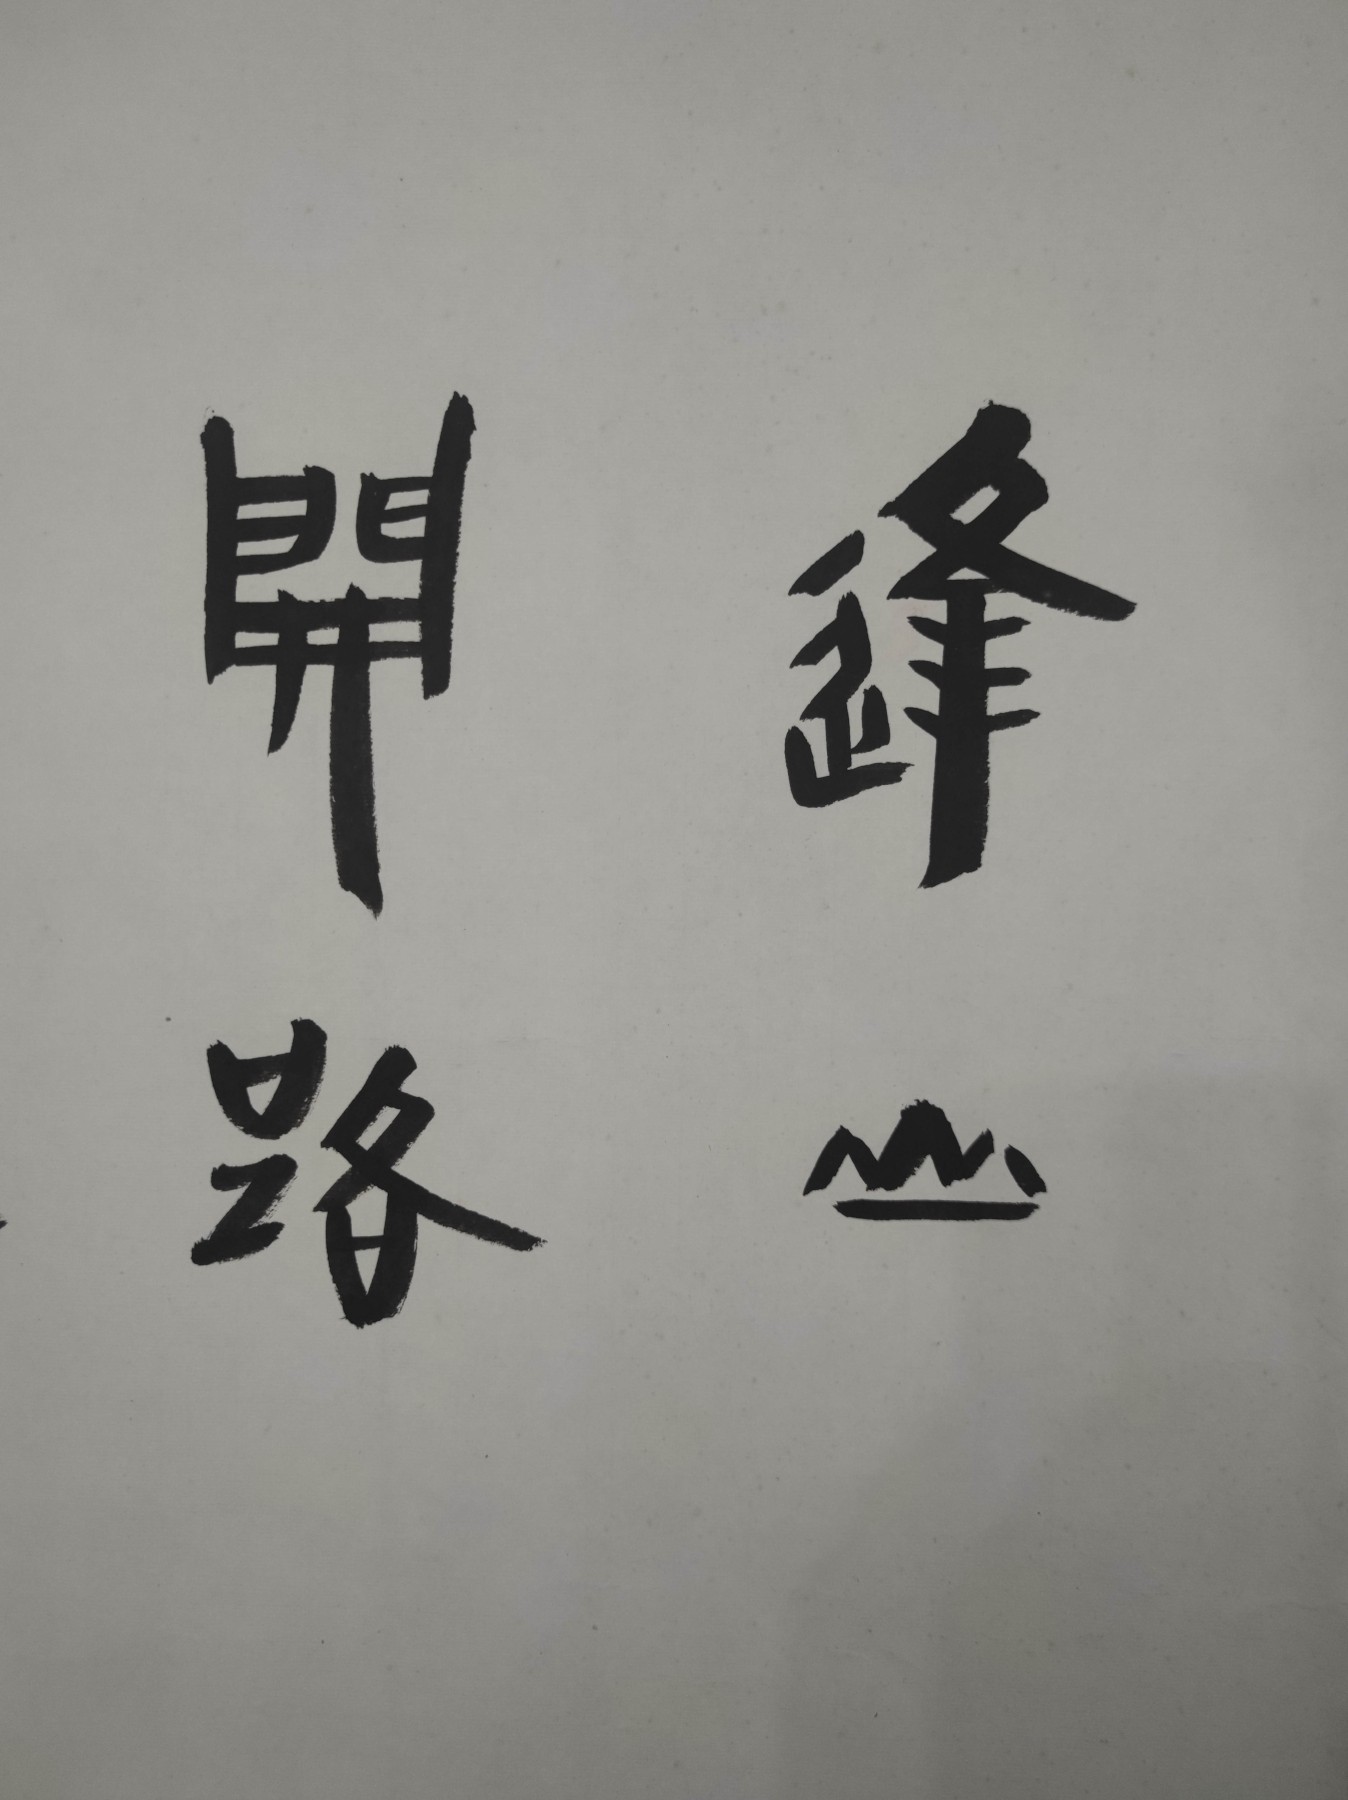 逢山
開路